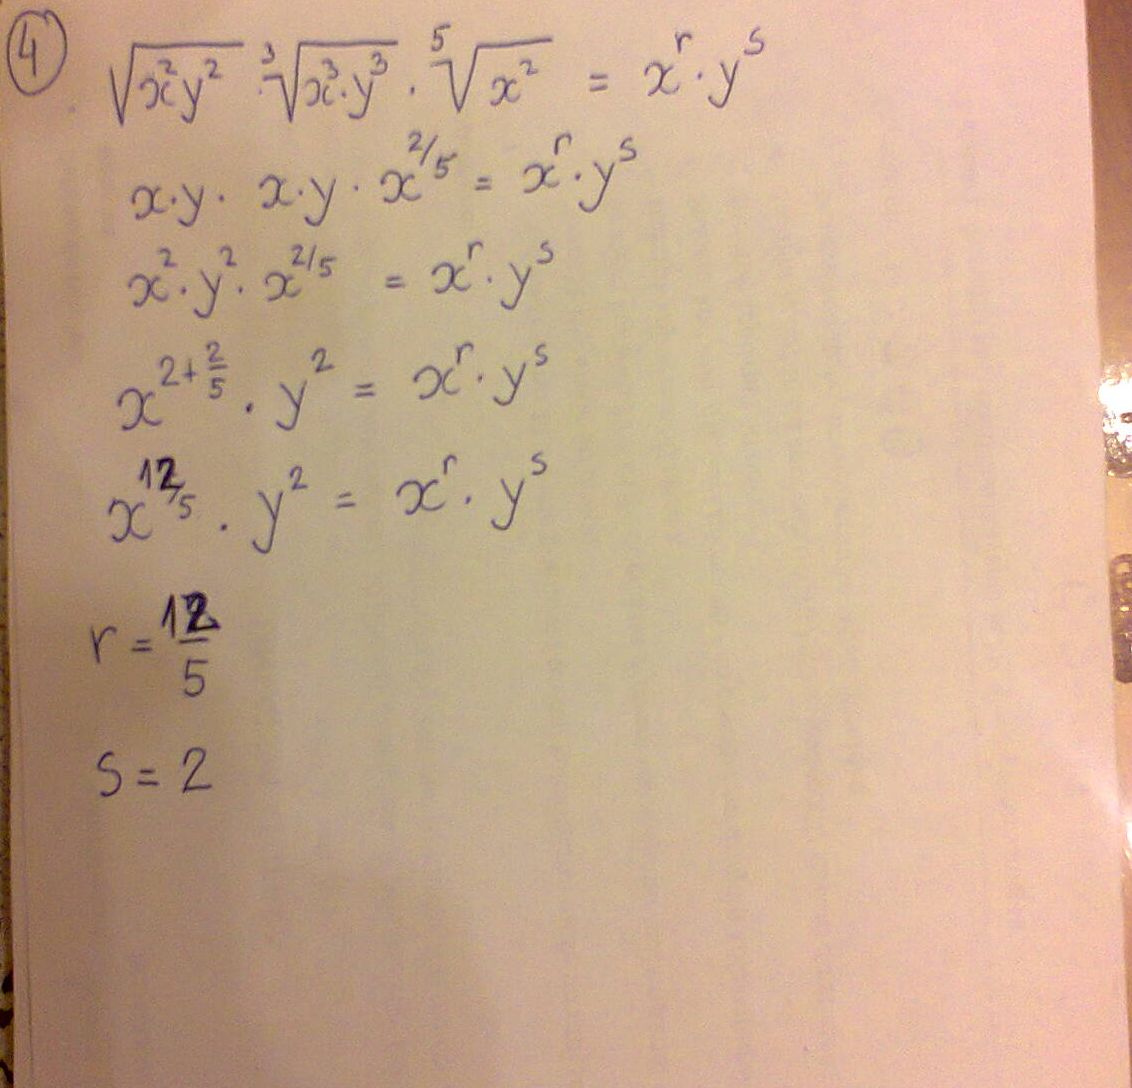 ④ √(x²y²) · ³√(x³·y³) · ⁵√(x²) = x^r · y^s
x·y · x·y · x^(2/5) = x^r · y^s
x² · y² · x^(2/5) = x^r · y^s
x^(2+2/5) · y² = x^r · y^s
x^(12/5) · y² = x^r · y^s
r = 12/5
s = 2